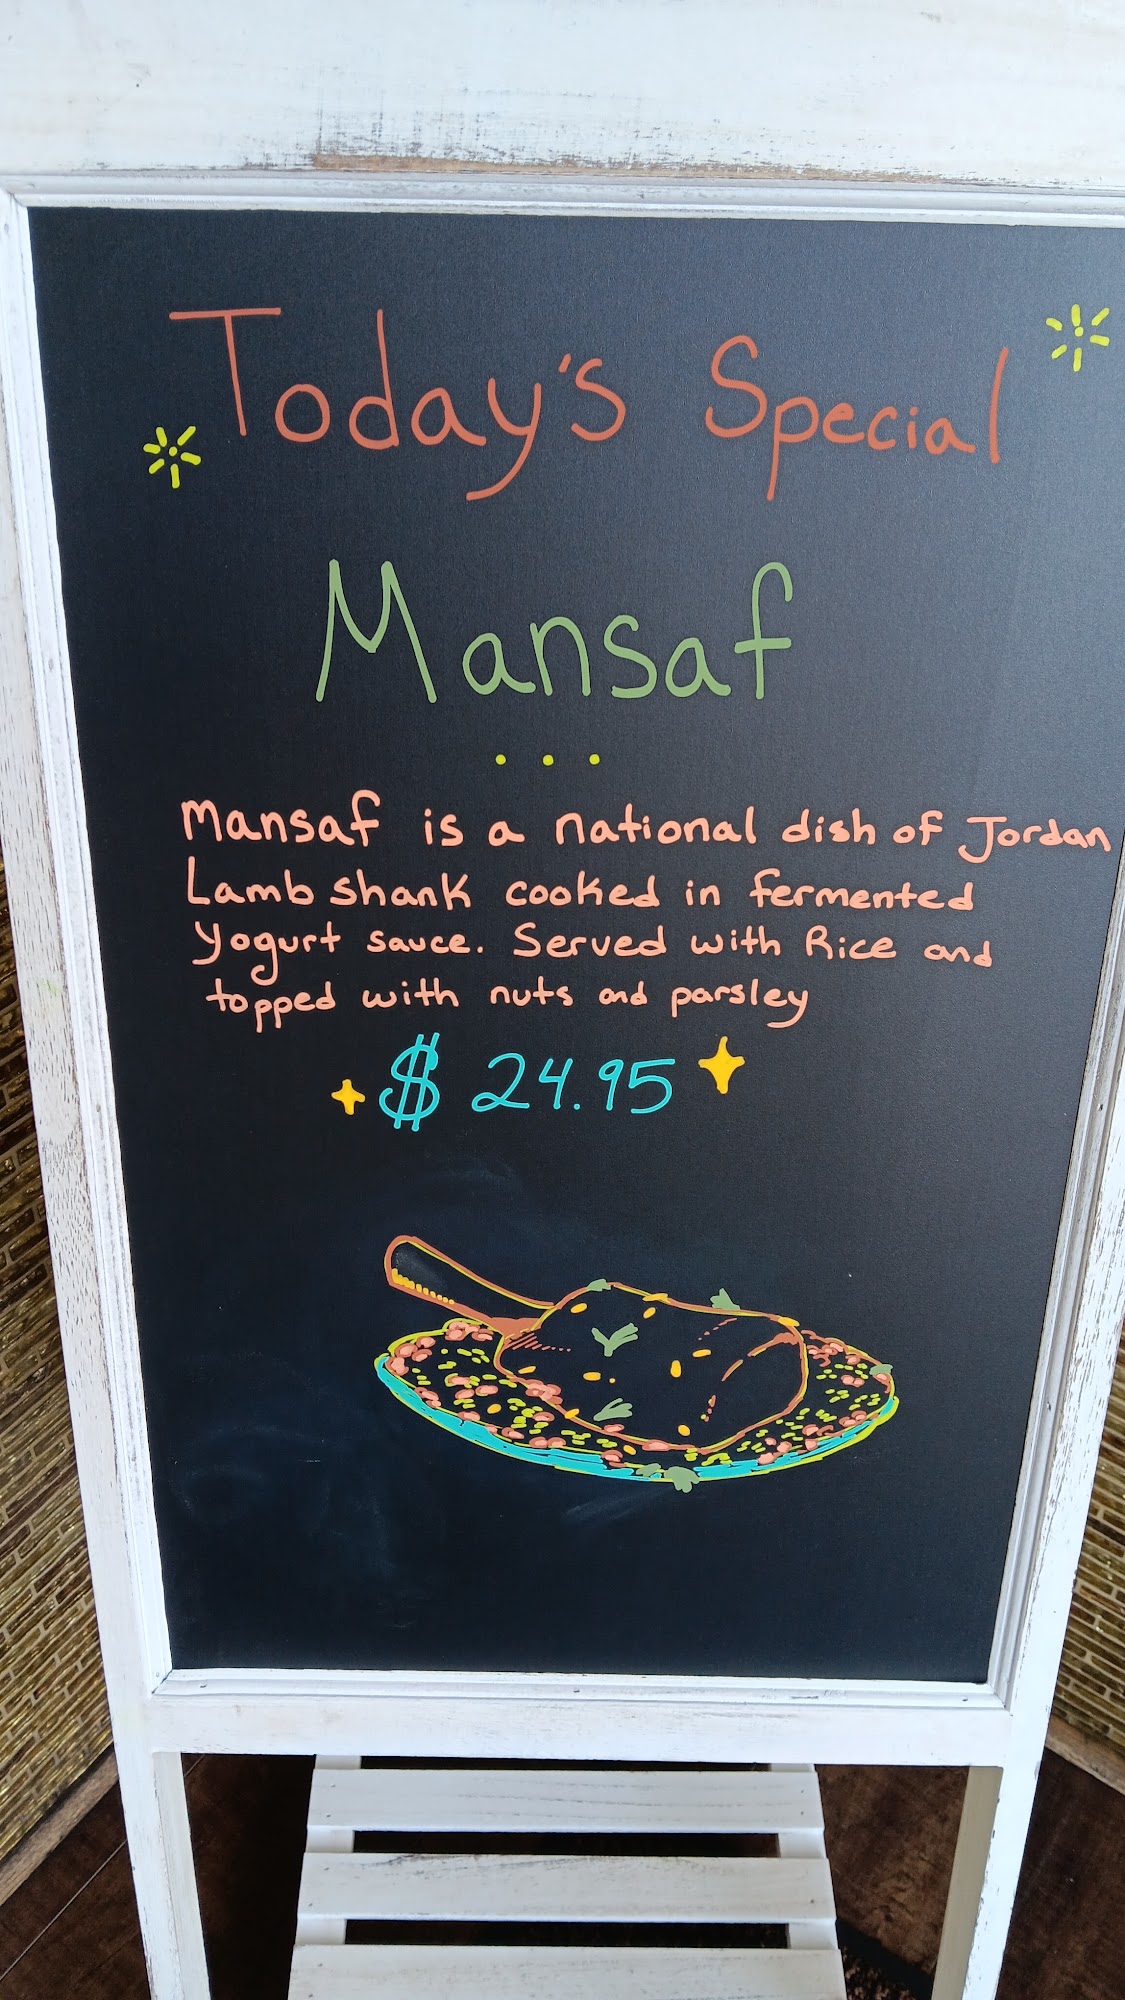 Today's Special
Mansaf
...
Mansaf is a national dish of Jordan
Lamb shank cooked in fermented
Yogurt sauce. Served with Rice and
topped with nuts and parsley
$ 24.95